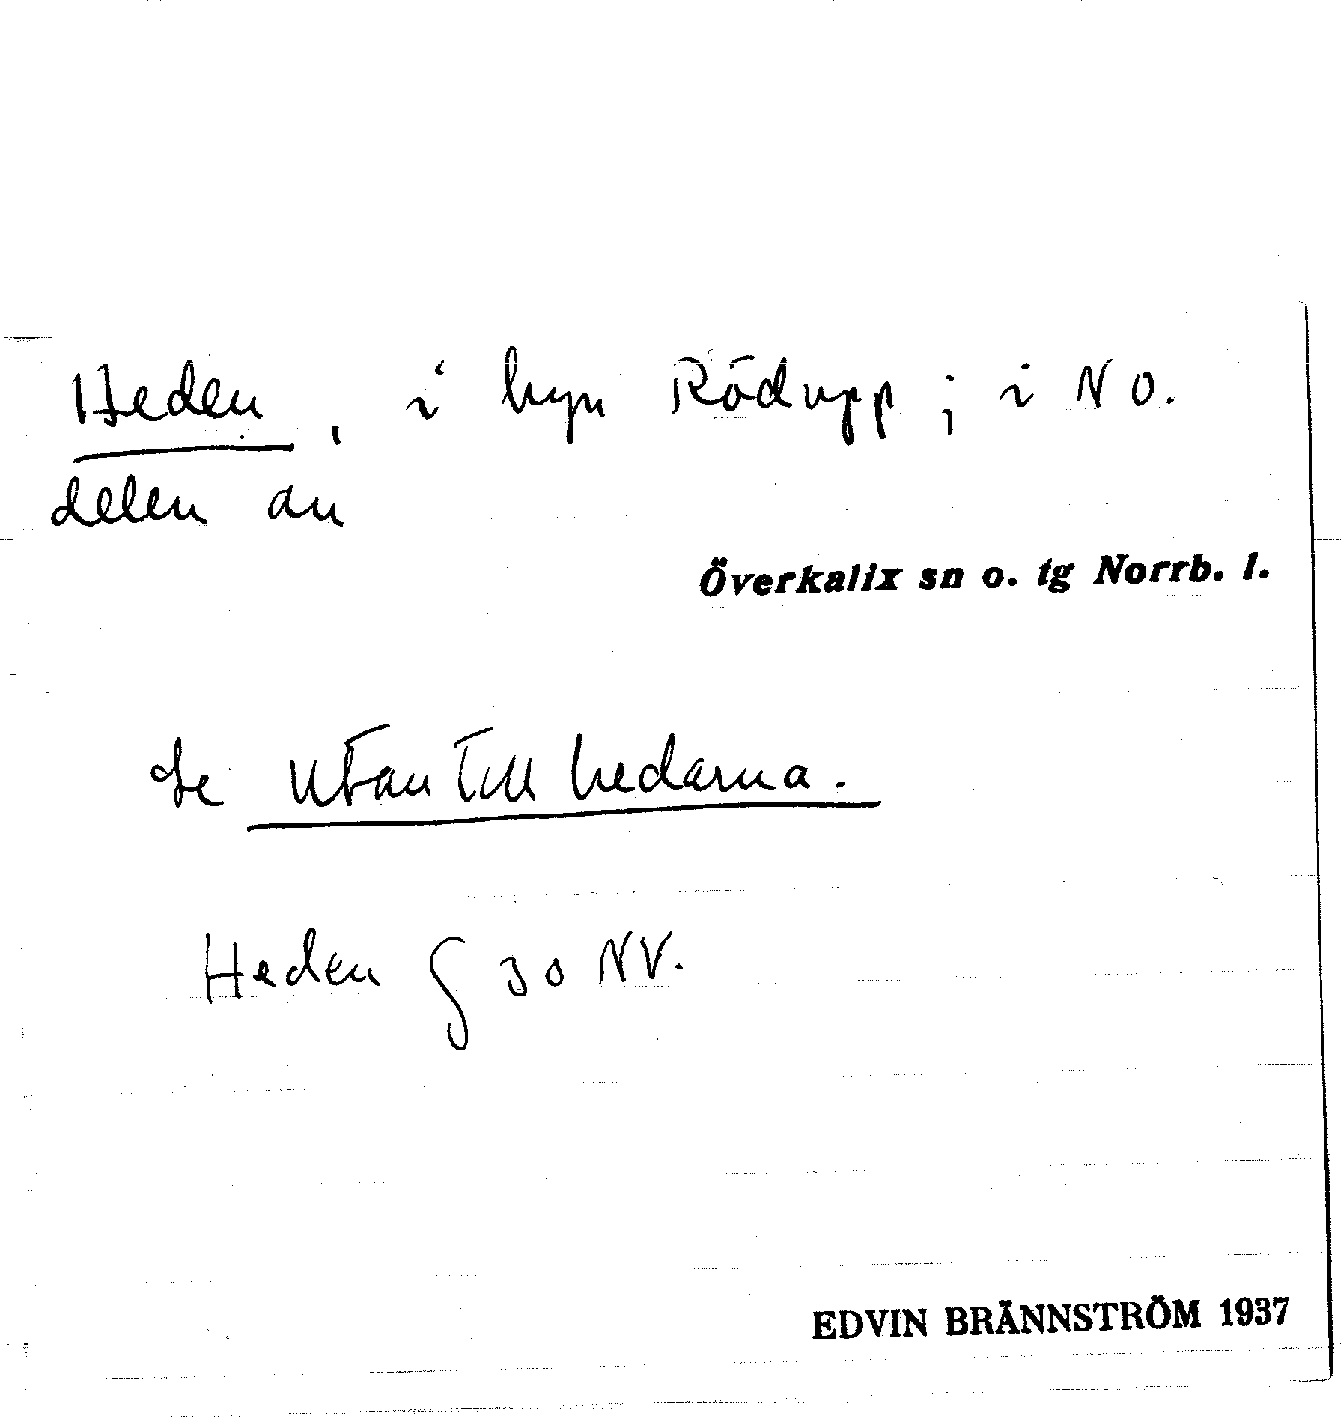 Heden, i byn Rödupp; i NO.
delen av
Överkalix sn o. tg Norrb. l.
Se Utantill hedarna.
Heden § 30 NV.
EDVIN BRÄNNSTRÖM 1937